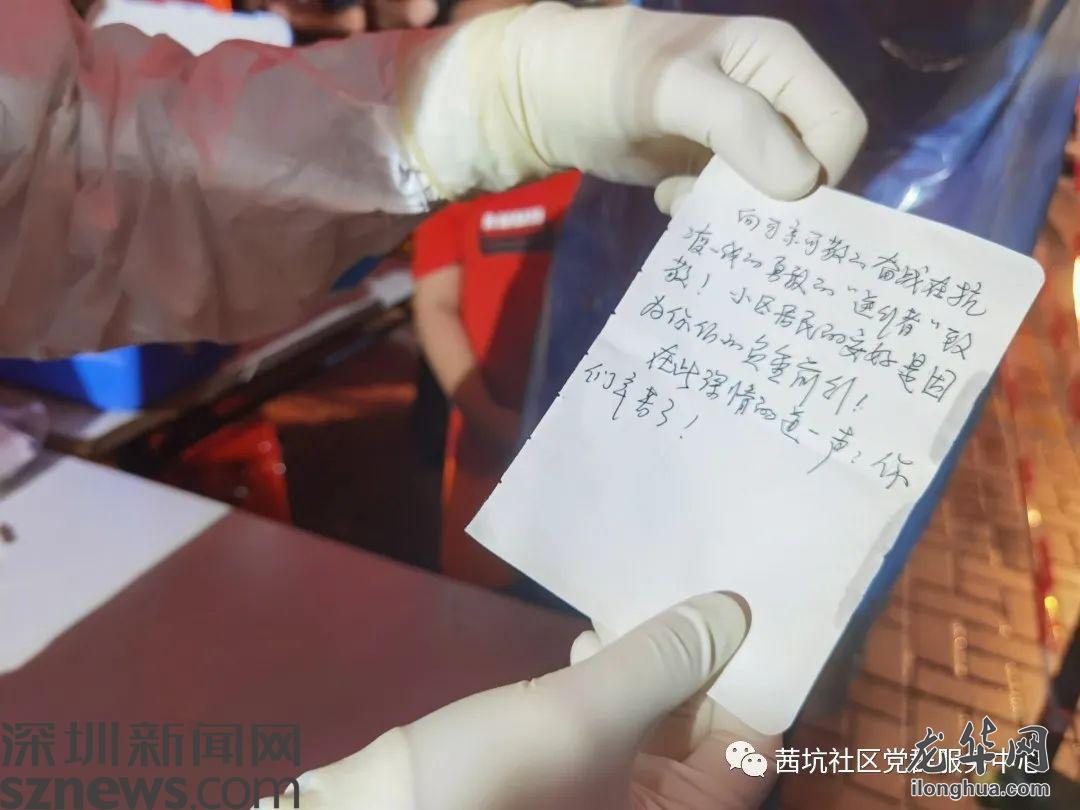 向可亲可敬的奋战在抗
疫一线的勇敢的“逆行者”致
敬！小区居民的安好是因
为你们的负重前行！
在此深情的道一声：你
们辛苦了！
深圳新闻网
sznews.com
茜坑社区党群服务中心
龙华网
ilonghua.com